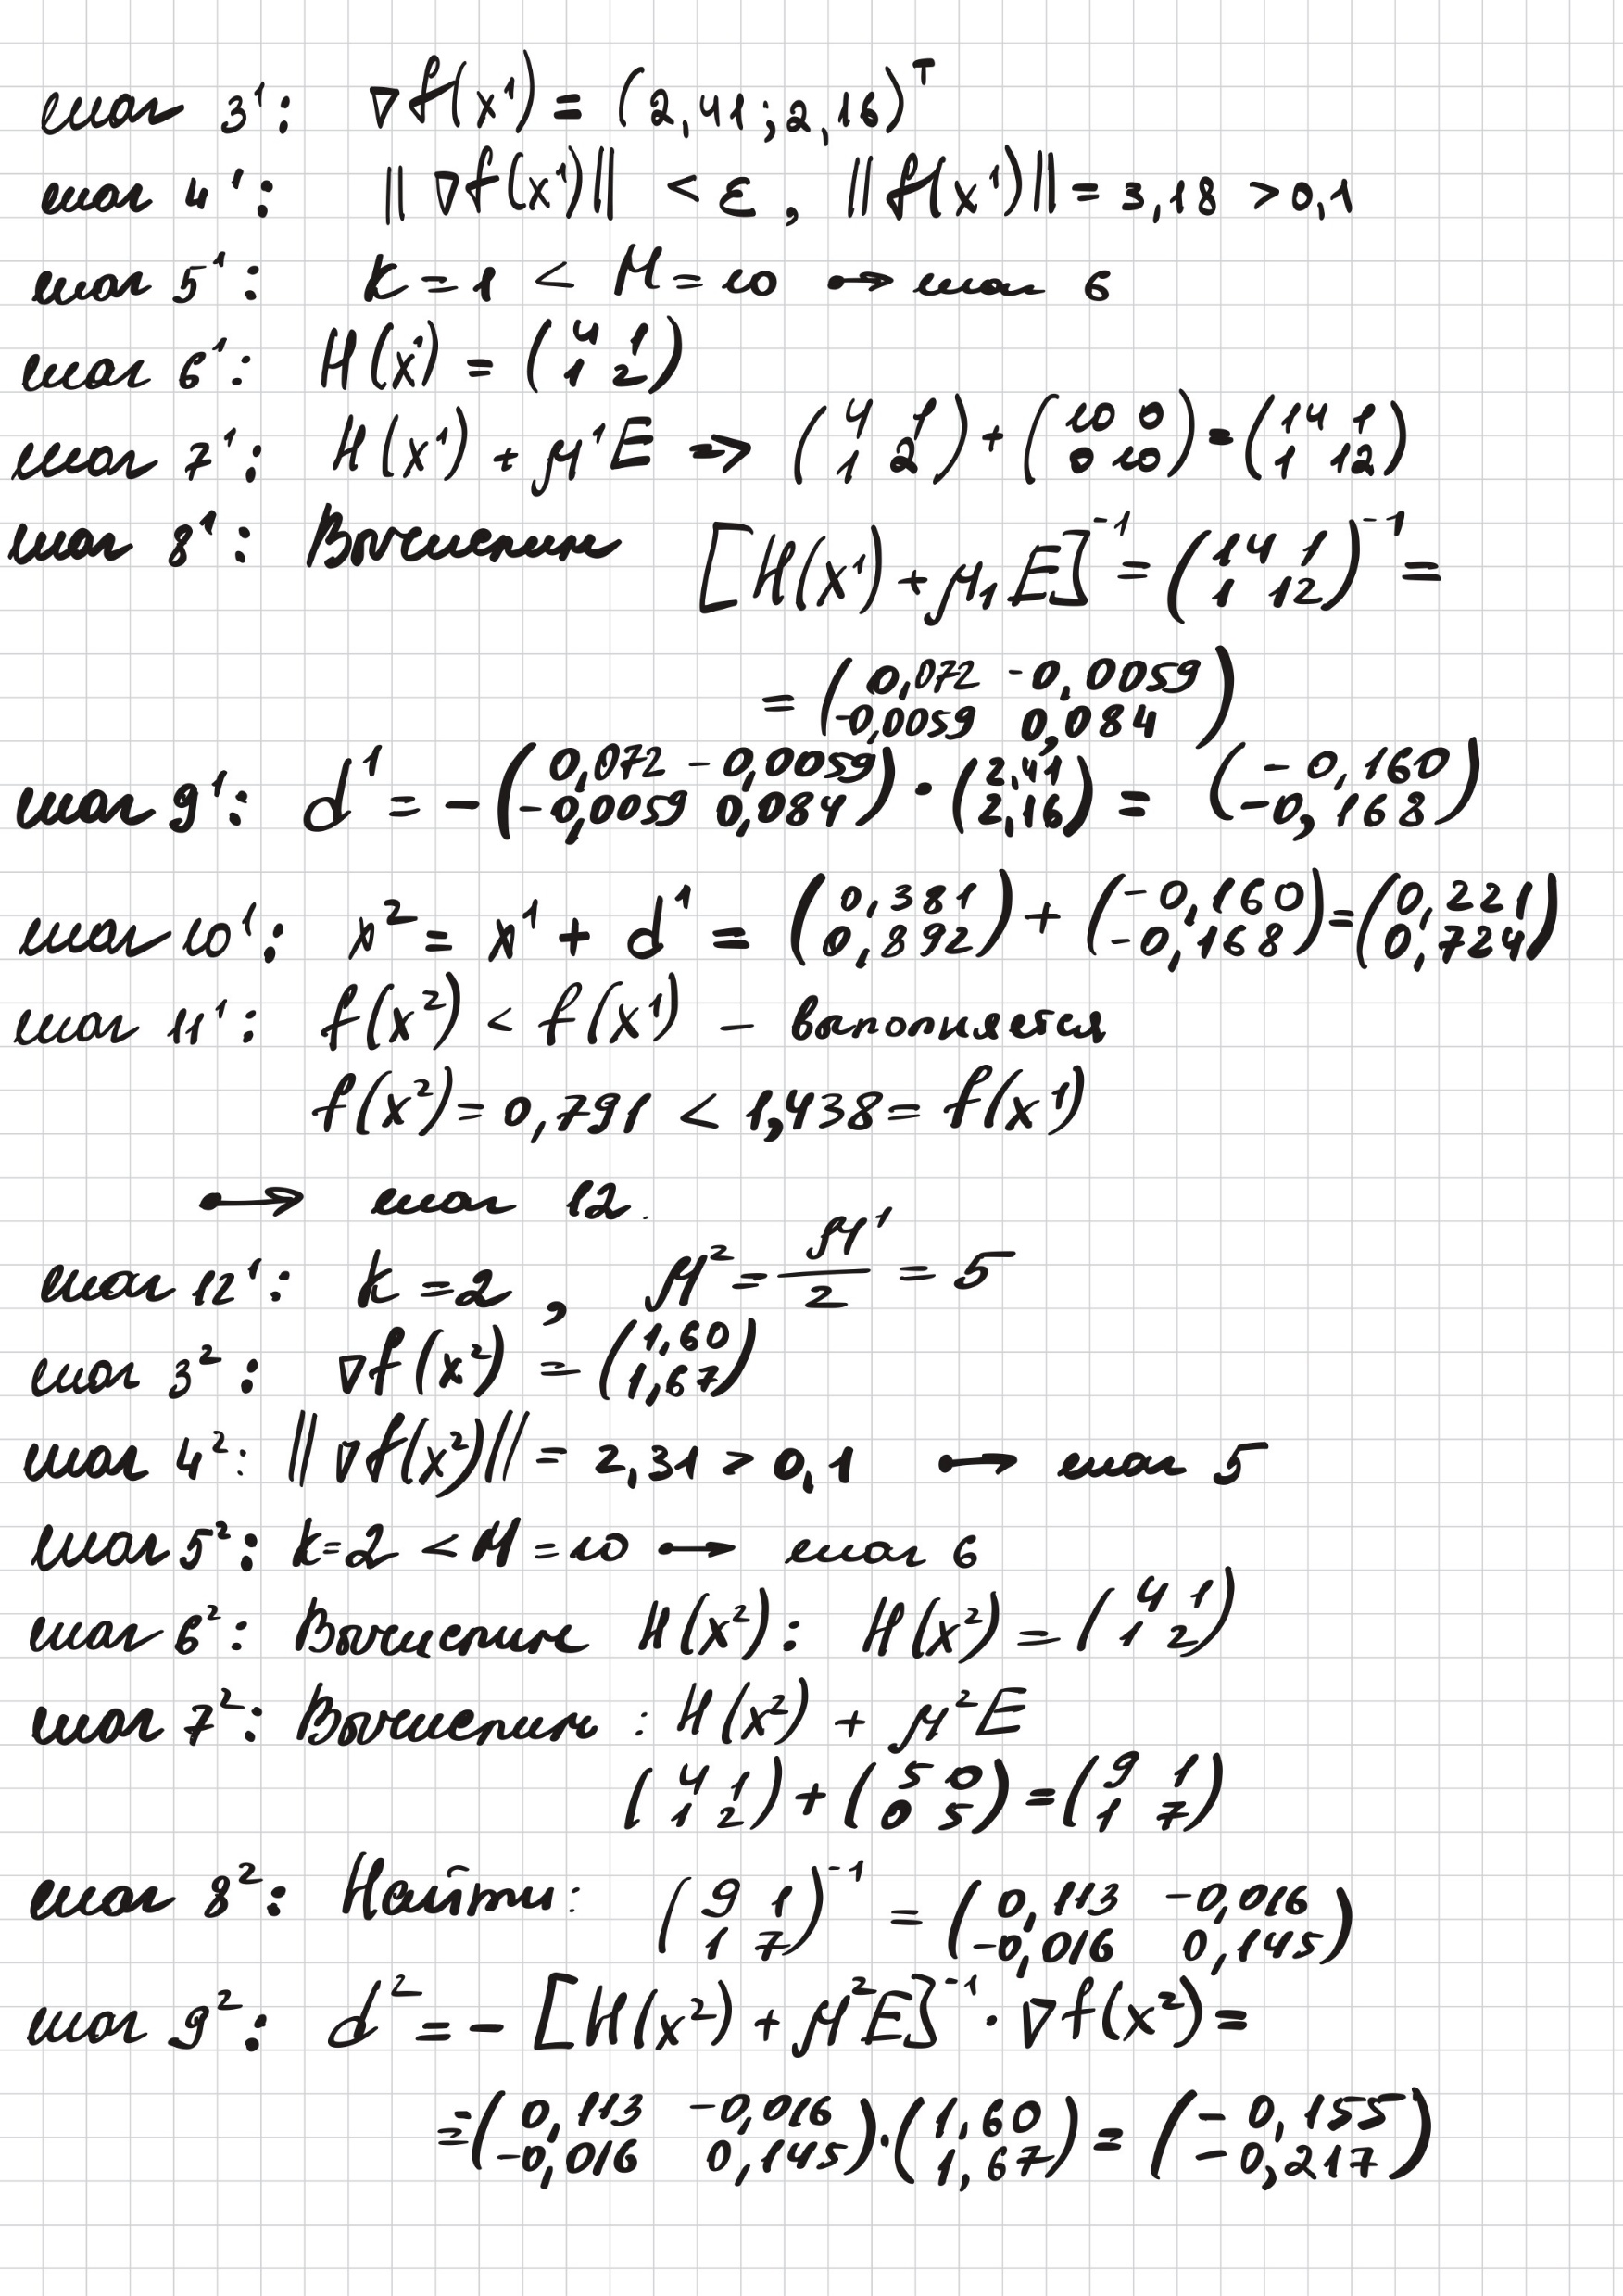 шаг 3¹: ∇f(x¹) = (2,41; 2,16)ᵀ
шаг 4¹: ‖∇f(x¹)‖ < ε, ‖f(x¹)‖ = 3,18 > 0,1
шаг 5¹: K = 1 < M = 10 → шаг 6
шаг 6¹: H(x¹) = (4 1; 1 2)
шаг 7¹: H(x¹) + μ¹E ⇒ (4 1; 1 2) + (10 0; 0 10) = (14 1; 1 12)
шаг 8¹: Вычислим [H(x¹) + μ₁E]⁻¹ = (14 1; 1 12)⁻¹ =
= (0,072 -0,0059; -0,0059 0,084)
шаг 9¹: d¹ = -(0,072 -0,0059; -0,0059 0,084) · (2,41; 2,16) = (-0,160; -0,168)
шаг 10¹: x² = x¹ + d¹ = (0,381; 0,892) + (-0,160; -0,168) = (0,221; 0,724)
шаг 11¹: f(x²) < f(x¹) – выполняется
f(x²) = 0,791 < 1,438 = f(x¹)
→ шаг 12.
шаг 12¹: K = 2, μ² = μ¹/2 = 5
шаг 3²: ∇f(x²) = (1,60; 1,67)
шаг 4²: ‖∇f(x²)‖ = 2,31 > 0,1 → шаг 5
шаг 5²: K = 2 < M = 10 → шаг 6
шаг 6²: Вычислим H(x²): H(x²) = (4 1; 1 2)
шаг 7²: Вычислим: H(x²) + μ²E
(4 1; 1 2) + (5 0; 0 5) = (9 1; 1 7)
шаг 8²: Найти: (9 1; 1 7)⁻¹ = (0,113 -0,016; -0,016 0,145)
шаг 9²: d² = -[H(x²) + μ²E]⁻¹ · ∇f(x²) =
= -(0,113 -0,016; -0,016 0,145) · (1,60; 1,67) = (-0,155; -0,217)